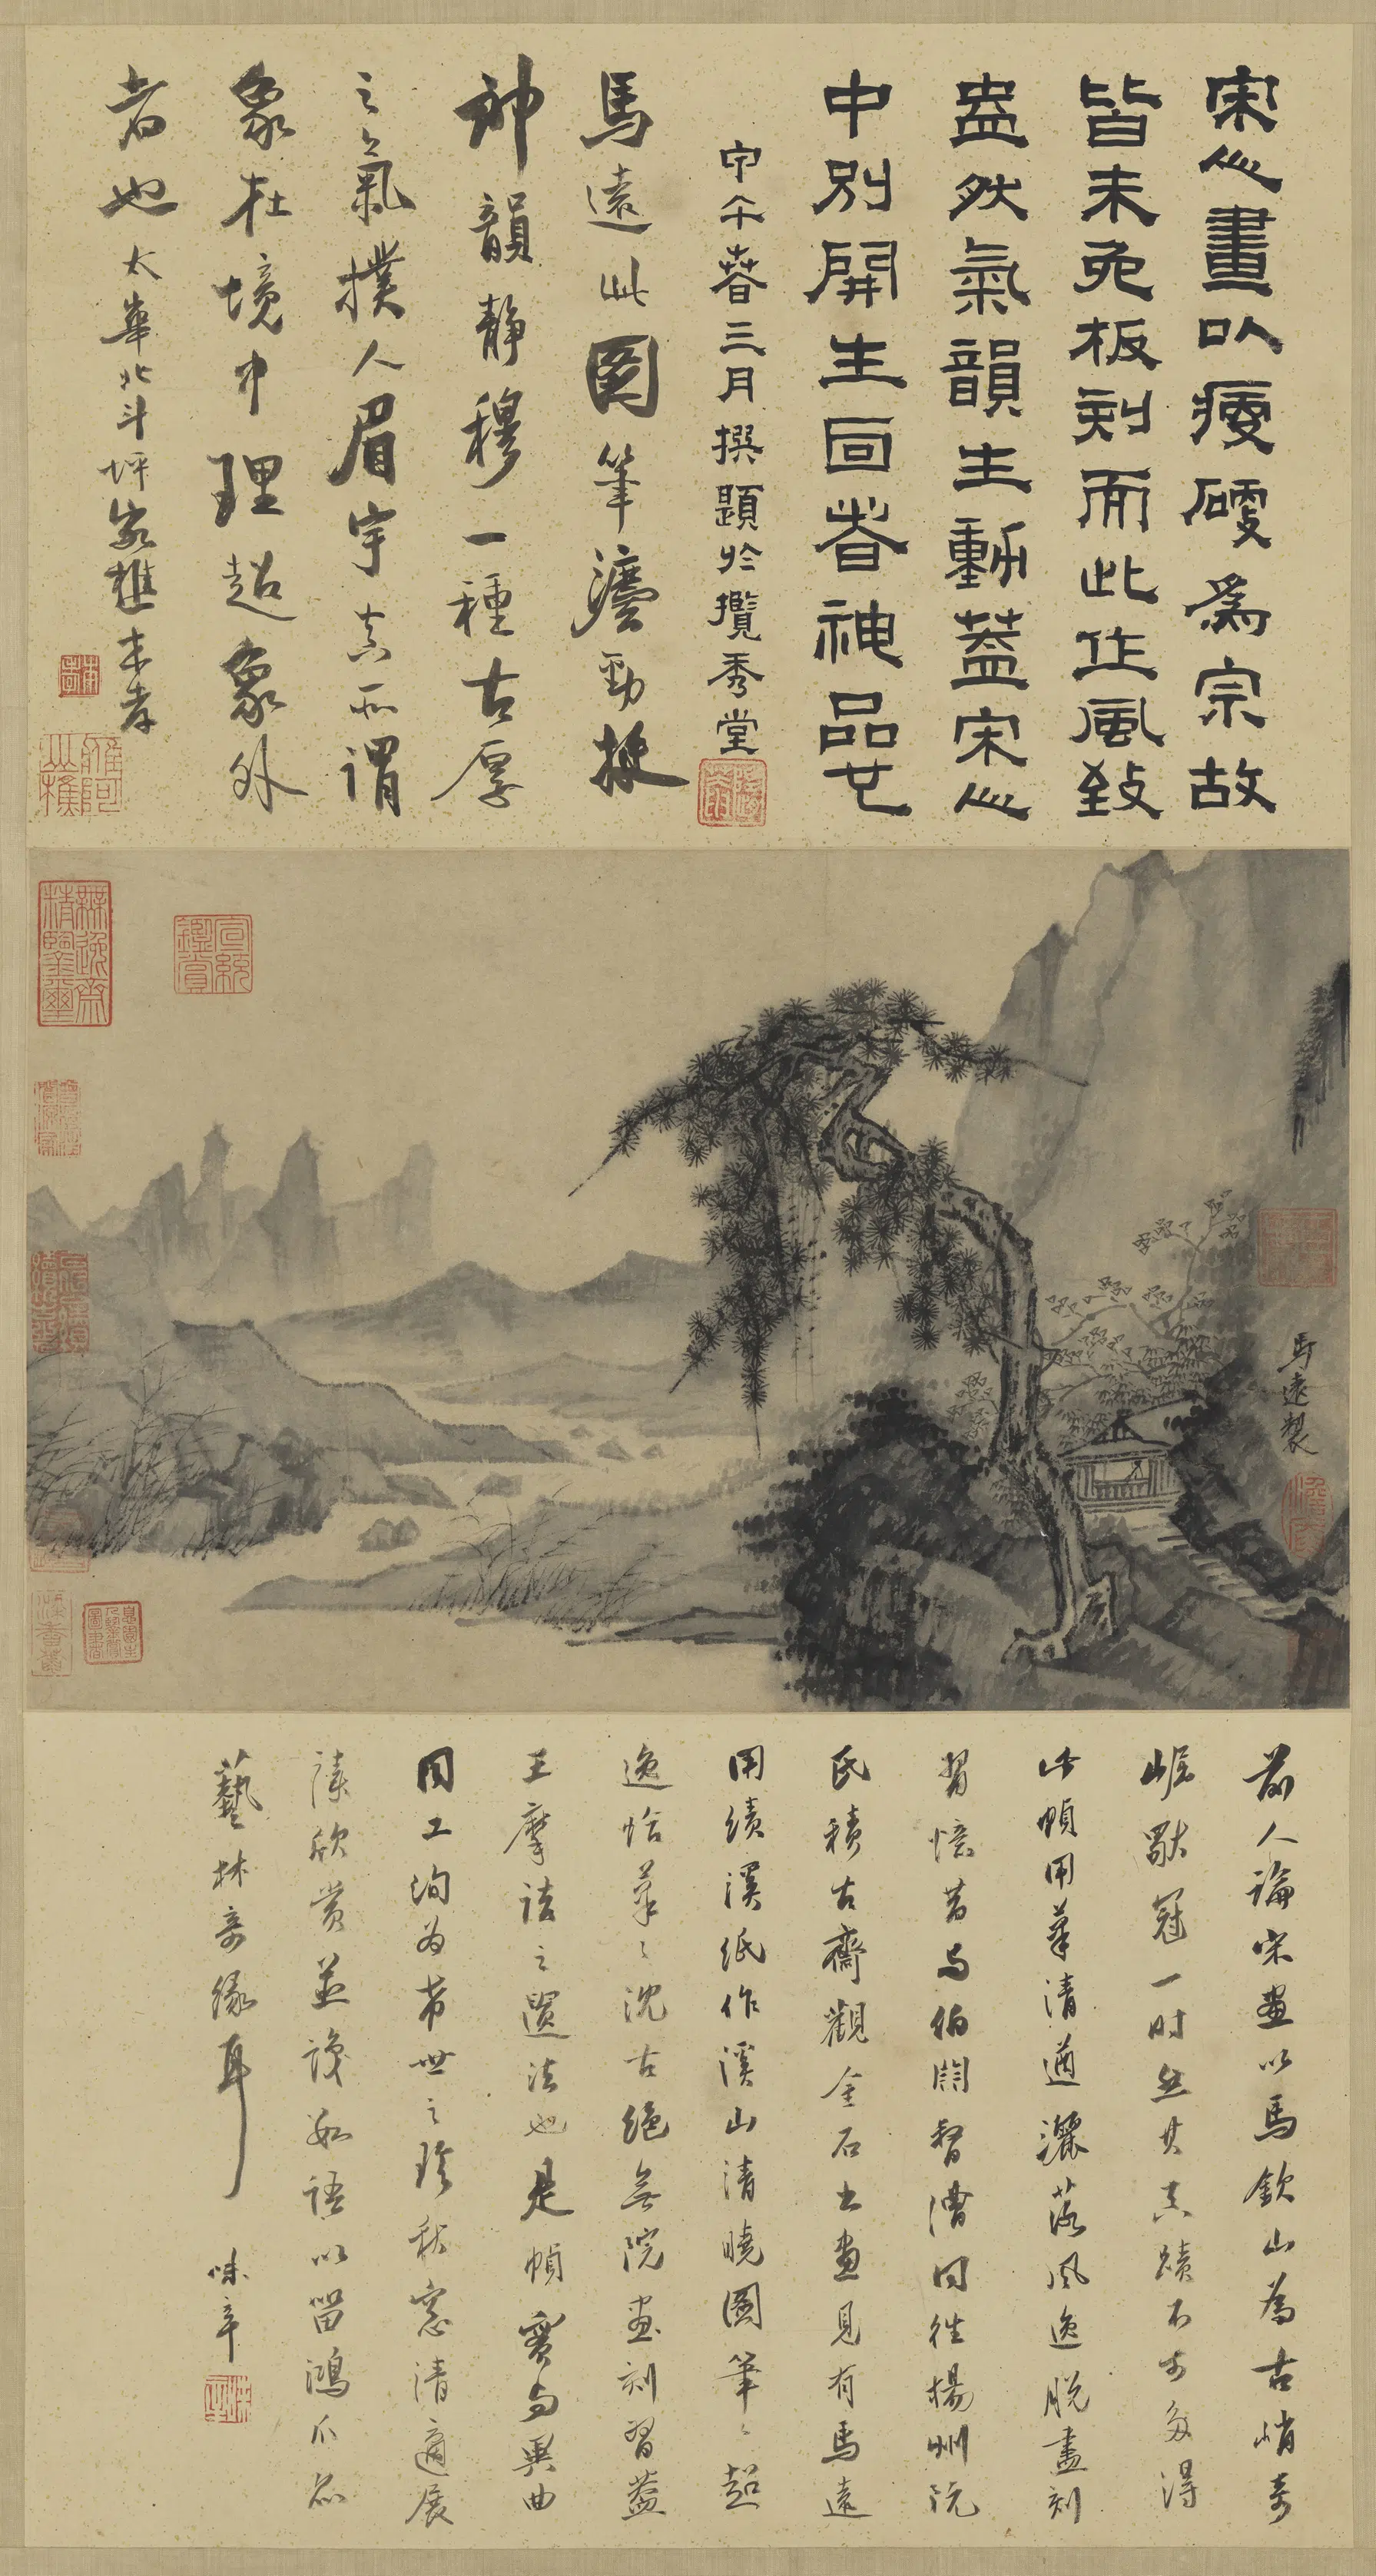 宋人畫以瘦硬為宗故
皆未免板刻而此作風致
盎然氣韻生動蓋宋人
中別開生面者神品也
甲午春三月撰題於攬秀堂
馬遠此圖筆瀍勁挺
神韻靜穆一種古厚
之氣撲人眉宇真所謂
象在境中理超象外
者也
太華北斗坪
馬遠製
宣統鑑賞
無逸齋精鑒璽
前人論宋畫以馬欽山為古峭奇
崛獨冠一時然其真蹟不可多得
此幀用筆清遒灑落風逸脫盡刻
習憶昔與伯 督漕同往楊州阮
氏積古齋觀金石書畫見有馬遠
用績溪紙作溪山清曉圖筆〻超
逸恰筆〻沈古絕無院畫刻習蓋
王摩詰之遺法也是幀實與異曲
同工洵為希世之珍秋窓清適展
讀欣賞並識數語以留鴻爪亦
藝林奇緣耳
味辛